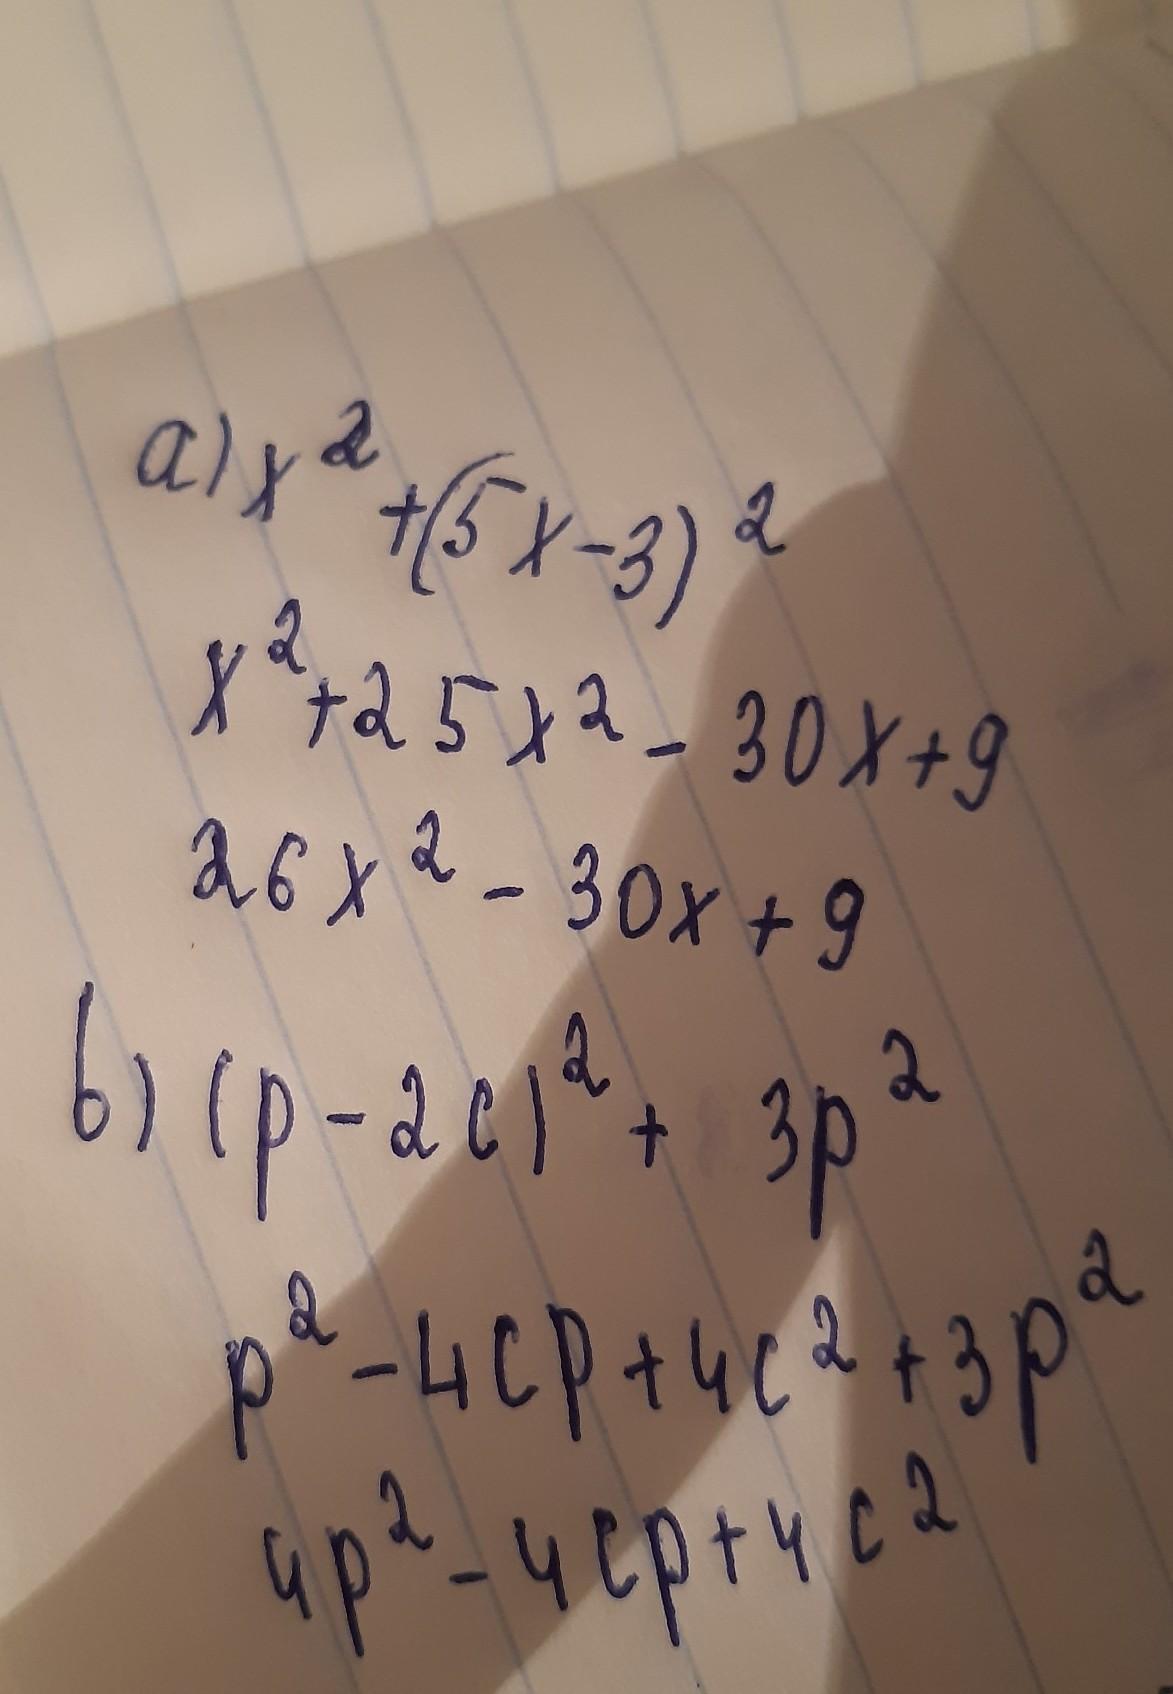 a) x² + (5x - 3)²
x² + 25x² - 30x + 9
26x² - 30x + 9
b) (p - 2c)² + 3p²
p² - 4cp + 4c² + 3p²
4p² - 4cp + 4c²